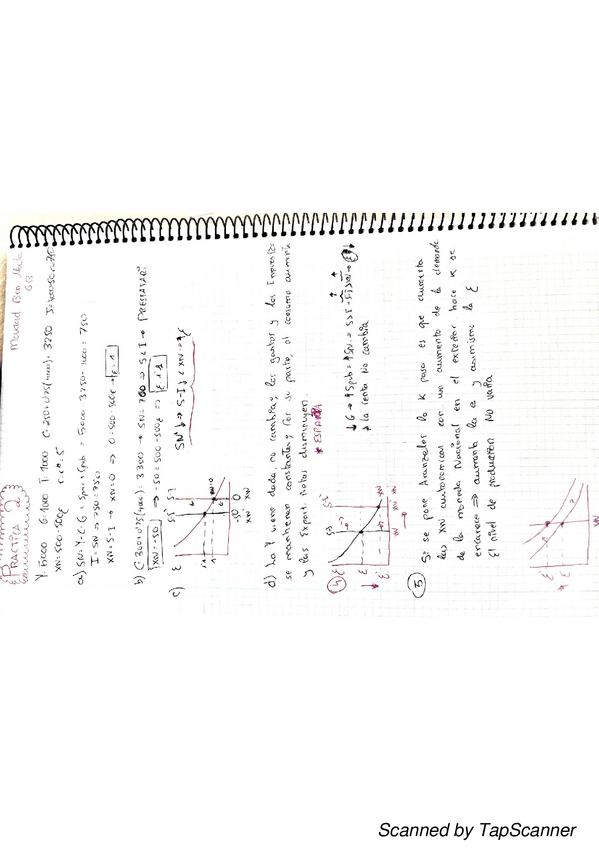 PRACTICA 2
Y=5000 G=1000 T=1000 C=250+0'75(4000)=3250
XN=500-500ε r=r*=5
a) SN=Y-C-G = Spriv+Spub = 5000-3250-1000=750
I=SN ⇒ 750=750
XN=S-I → XN=0 ⇒ 0=500-500ε → ε=1
b) C=300+0'75(4000)=3300 → SN=700 ⇒ S<I →
XN=-50 ⇒ -50=500-500ε ⇒ ε=1'1
c)
ε
S-I
XN
SN↓ ⇒ S-I↓ ¿XN→?ε
d) La Y viene dada, no cambia, los gastos y los
se mantienen constantes y por su parte, el consumo aumenta
y las Export. Notas disminuyen.
* ESPAÑA
4)
ε
XN
↓G → ↑Spub = ↑SN →
* la renta No cambia
5
Si se pone Aranceles lo k pasa es que aumenta
las XN autonomicas con un aumento de la demanda
de la moneda Nacional en el exterior hace k se
encarece ⇒ aumenta la e y asimismo la ε
El nivel de produccion NO varía
ε
XN
Scanned by TapScanner